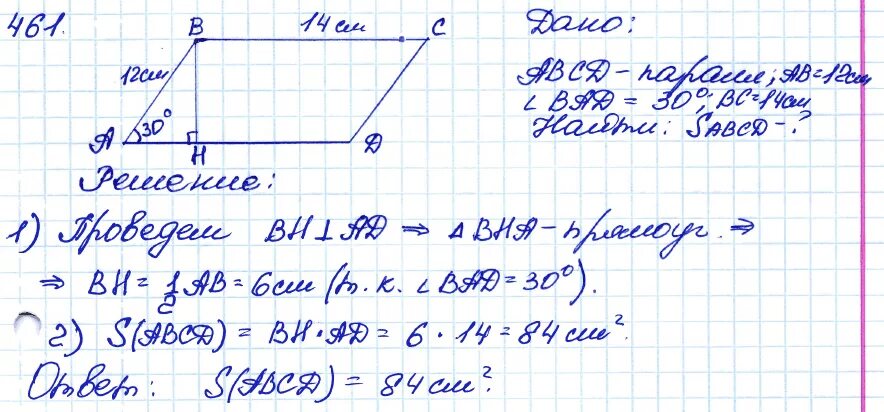 461.
B 14 см C
12 см
A 30° H D
Дано:
ABCD - паралл; AB = 12 см
∠BAD = 30°; BC = 14 см
Найти: SABCD - ?
Решение:
1) Проведем BH ⊥ AD ⇒ △BHA - прямоуг. ⇒
⇒ BH = 1/2 AB = 6 см (т. к. ∠BAD = 30°).
2) S(ABCD) = BH · AD = 6 · 14 = 84 см².
Ответ: S(ABCD) = 84 см².